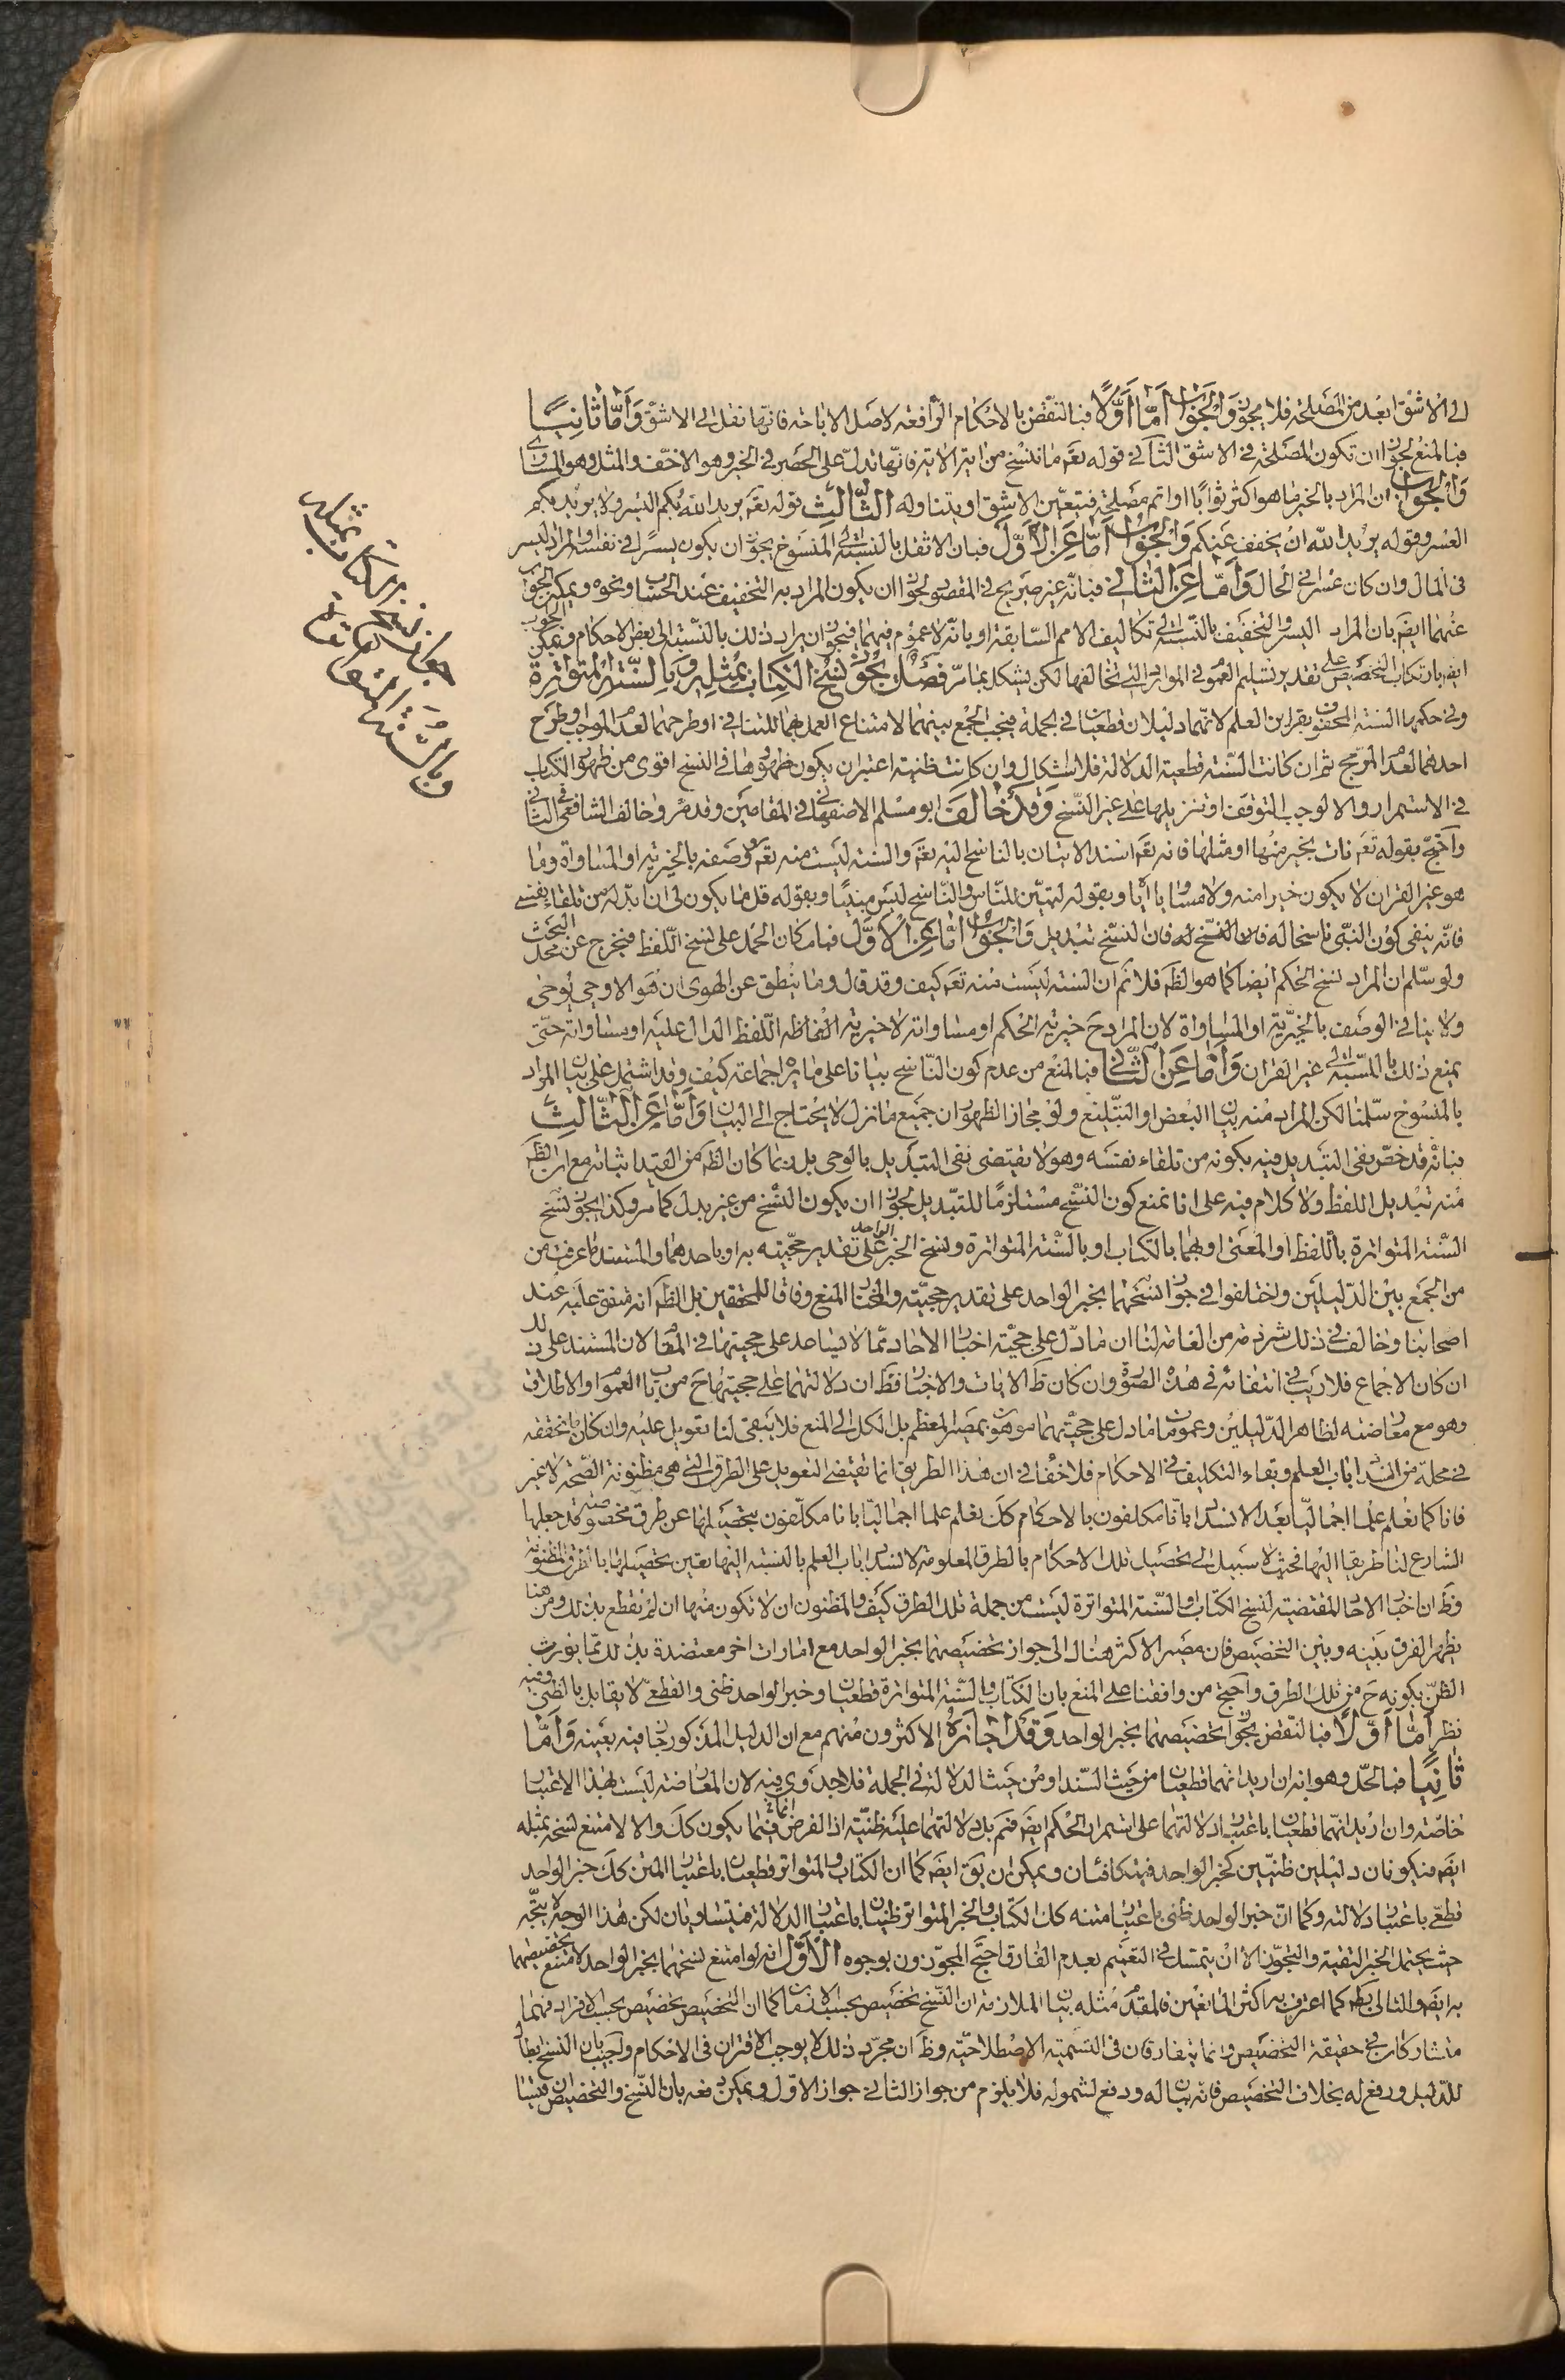 الى الاشق ابعد من المصلحة فلا يجوز والجواب اما اولا فبالنقض بالاحكام الرافعة لاصل الاباحة فانها نقل الى الاشق واما ثانيا
فبالمنع لجواز ان تكون المصلحة فى الاشق الثانى قوله تعم ما ننسخ من اية الاية فانها تدل على الحصر فى الخير وهو الاخف والمثل وهو المساوى
والجواب ان المراد بالخير ما هو اكثر ثوابا او اتم مصلحة فيتعين الاشق او يتناوله الثالث قوله تعم يريد الله بكم اليسر ولا يريد بكم
العسر وقوله يريد الله ان يخفف عنكم والجواب اما عن الاول فبان الاثقل بالنسبة الى المنسوخ يجوز ان يكون يسرا فى نفسه او المراد اليسر
فى المال وان كان عسرا فى الحال واما عن الثانى فبانه غير صريح فى المقصود لجواز ان يكون المراد به التخفيف عند الحساب ونحوه ويمكن الجواب
عنهما ايضا بان المراد اليسر والتخفيف بالنسبة الى تكاليف الامم السابقة او بانه لا عموم فيهما فيجوز ان يراد ذلك بالنسبة الى بعض الاحكام ويمكن الجواب
ايضا بارتكاب التخصيص على تقدير تسليم العموم فى الموارد التى تخالفها لكن يشكل بما مر فصل يجوز نسخ الكتاب بمثله وبالسنة المتواترة
وفى حكمها السنة المحفوفة بقراين العلم لانهما دليلان قطعيان فى الجملة فيجب الجمع بينهما لامتناع العمل بهما للتنافى او طرحهما لعدم الموجب او طرح
احدهما لعدم المرجح ثم ان كانت السنة قطعية الدلالة فلا اشكال وان كانت ظنية اعتبر ان يكون ظهورها فى النسخ اقوى من ظهور الكتاب
فى الاستمرار والا لوجب التوقف او تنزيلها على غير النسخ وقد خالف ابو مسلم الاصفهانى فى المقامين وقد مر وخالف الشافعى فى الثانى
واحتج بقوله تعم نات بخير منها او مثلها فانه تعم اسند الاتيان بالناسخ اليه تعم والسنة ليست منه تعم ووصفه بالخيرية او المساواة وما
هو غير القران لا يكون خيرا منه ولا مساويا اياه وبقوله لتبين للناس والناسخ ليس مبينا وبقوله قل ما يكون لى ان ابدله من تلقاء نفسى
فانه ينفى كون النبى ناسخا له فان النسخ تبديل والجواب اما عن الاول فبامكان الحمل على نسخ اللفظ فيخرج عن محل البحث
ولو سلم ان المراد نسخ الحكم ايضا كما هو الظم فلا نم ان السنة ليست منه تعم كيف وقد قال وما ينطق عن الهوى ان هو الا وحى يوحى
ولا ينافى الوصف بالخيرية او المساواة لان المراد ح خيرية الحكم او مساواته لا خيرية الفاظه اللفظ الدال عليه او مساواته حتى
يمنع ذلك بالنسبة الى غير القران واما عن الثانى فبالمنع من عدم كون الناسخ بيانا على ما يره اجماعة كيف وقد اشتمل على بيان المراد
بالمنسوخ سلمنا لكن المراد منه بيان البعض او التبليغ ولو بمجاز الظهوران جميع ما نزل لا يحتاج الى البيان واما عن الثالث
فبانه قد خص نفى التبديل فيه بكونه من تلقاء نفسه وهو لا يقتضى نفى التبديل بالوحى بل ربما كان الظم من القيد اثباته مع ان الظم
منه تبديل اللفظ ولا كلام فيه على انا نمنع كون النسخ مستلزما للتبديل لجواز ان يكون النسخ من غير بدل كما مر وكذا يجوز نسخ
السنة المتواترة باللفظ او المعنى او بهما بالكتاب او بالسنة المتواترة ونسخ الخبر الواحد على تقدير حجيته به او باحدهما والمستند ما عرفت من
من الجمع بين الدليلين واختلفوا فى جواز نسخهما بخبر الواحد على تقدير حجيته والمختار المنع وفاقا للمحققين بل الظم انه متفق عليه عند
اصحابنا وخالف فى ذلك شرذمة من العامة لنا ان ما دل على حجية اخبار الاحاد مما لا يساعد على حجيتها فى المقام لان المستند على ذلك
ان كان الاجماع فلا ريب فى انتفائه فى هذه الصورة وان كان ظ الايات والاخبار فظ ان دلالتهما على حجيتها ح من باب العموم او الاطلاق
وهو مع معارضته لظاهر الدليلين وعموم ما دل على حجيتهما موهون بمصير المعظم بل الكل الى المنع فلا يبقى لنا تعويل عليه وان كان ما نحققه
فى محله من انسداد باب العلم وبقاء التكليف فى الاحكام فلا خفاء فى ان هذا الطريق انما يقتضى التعويل على الطرق التى هى مظنونة الصحة لا غير
فانا كما نعلم علما اجماليا بعد الانسداد بانا مكلفون بالاحكام كك نعلم علما اجماليا بانا مكلفون بتحصيلها عن طرق مخصوصة قد جعلها
الشارع لنا طريقا اليها فحيث لا سبيل الى تحصيل تلك الاحكام بالطرق المعلومة لانسداد باب العلم بالنسبة اليها تعين تحصيلها بالطرق المظنونة
وظ ان اخبار الاحاد المقتضية لنسخ الكتاب والسنة المتواترة ليست من جملة تلك الطرق كيف والمظنون ان لا تكون منها ان لم نقطع بذلك ومن هنا
يظهر الفرق بينه وبين التخصيص فان مصير الاكثر هناك الى جواز تخصيصهما بخبر الواحد مع امارات اخر معتضدة بذلك مما يورث
الظن بكونه ح من تلك الطرق واحتج من وافقنا على المنع بان الكتاب والسنة المتواترة قطعيان وخبر الواحد ظنى والقطعى لا يقابل بالظنى وفيه
نظر اما اولا فبالنقض بجواز تخصيصهما بخبر الواحد وقد اجازه الاكثرون منهم مع ان الدليل المذكور جار فيه بعينه واما
ثانيا فبالحل وهو انه ان اريد انهما قطعيان من حيث السند او من حيث الدلالة فى الجملة فلا جدوى فيه لان المعارضة ليست بهذا الاعتبار
خاصة وان اريد انهما قطعيان باعتبار دلالتهما على استمرار الحكم ايضا فنم بل دلالتهما عليه ظنية اذ الفرض انما فيما يكون كك والا لامتنع نسخه بمثله
ايضا فيكونان دليلين ظنيين كخبر الواحد فيتكافئان ويمكن ان يق ايضا كما ان الكتاب والمتواتر قطعيان باعتبار المتن كك خبر الواحد
قطعى باعتبار دلالته وكما ان خبر الواحد ظنى باعتبار متنه كك الكتاب والخبر المتواتر ظنيان باعتبار الدلالة فيتساويان لكن هذا الوجه لا يتجه
حيث يحتمل الخبر التقية والتجوز الا ان يتمسك فى التعميم بعدم الفارق احتج المجوزون بوجوه الاول انه لو امتنع نسخهما بخبر الواحد لامتنع تخصيصهما
به ايضا والتالى بط كما اعترف به اكثر المانعين فالمقدم مثله بيان الملازمة ان النسخ تخصيص بحسب الازمان كما ان التخصيص تخصيص بحسب الافراد فهما
متشاركان فى حقيقة التخصيص وانما يتفارقان فى التسمية الاصطلاحية وظ ان مجرد ذلك لا يوجب الافتراق فى الاحكام واجيب بان النسخ ابطال
للدليل ورفع له بخلاف التخصيص فانه بيان له ودفع لشموله فلا يلزم من جواز الثانى جواز الاول ويمكن دفعه بان النسخ والتخصيص سيان
جواز نسخ الكتاب بمثله
وبالسنة المتواترة